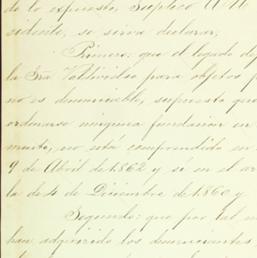 de lo expuesto, Suplico á U.
sidente, se sirva declarar;
Primero: que el legado de
la Sra Valdivielso para objetos
no es denunciable, supuesto que
ordenarse ninguna fundacion en
mento, no está comprendido en
9 de Abril de 1862 y sí en el
la de 4 de Diciembre de 1860 y
Segundo: que por tal
han adquirido los denunciantes,